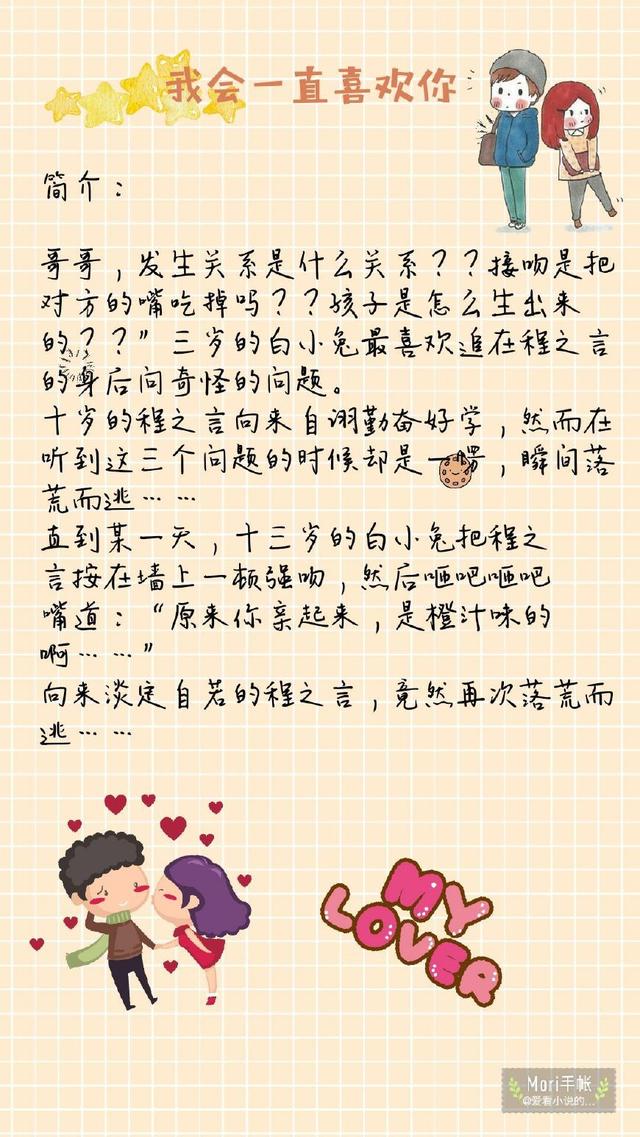 我会一直喜欢你
简介：
哥哥，发生关系是什么关系？？接吻是把
对方的嘴吃掉吗？？孩子是怎么生出来
的？？”三岁的白小兔最喜欢追在程之言
的身后问奇怪的问题。
十岁的程之言向来自诩勤奋好学，然而在
听到这三个问题的时候却是一愣，瞬间落
荒而逃……
直到某一天，十三岁的白小兔把程之
言按在墙上一顿强吻，然后咂吧咂吧
嘴道：“原来你亲起来，是橙汁味的
啊……”
向来淡定自若的程之言，竟然再次落荒而
逃……
MY
LOVER
Mori手帐
@爱看小说的...